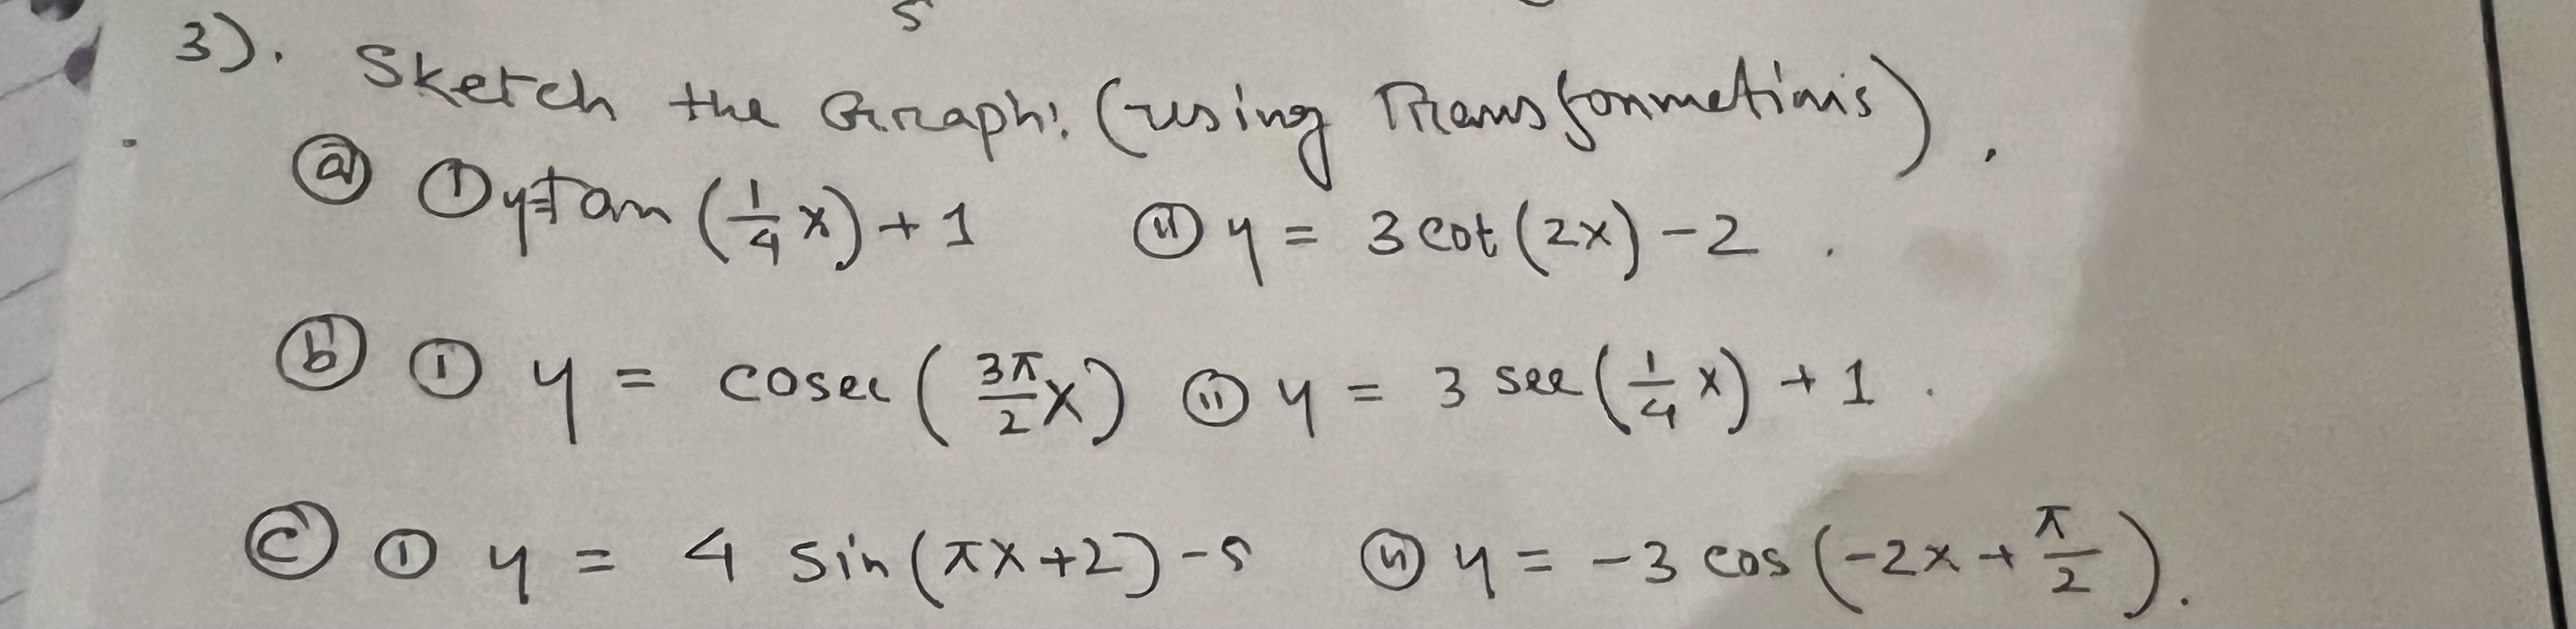 5
3). Sketch the Graph: (using Transformations).
ⓐ ⓘ y=tan (1/4 x) + 1 ⓘⓘ y = 3 cot (2x) - 2 .
ⓑ ⓘ y = cosec (3π/2 x) ⓘⓘ y = 3 sec (1/4 x) + 1 .
ⓒ ⓘ y = 4 sin (πx+2) - 5 ⓘⓘ y = -3 cos (-2x + π/2).